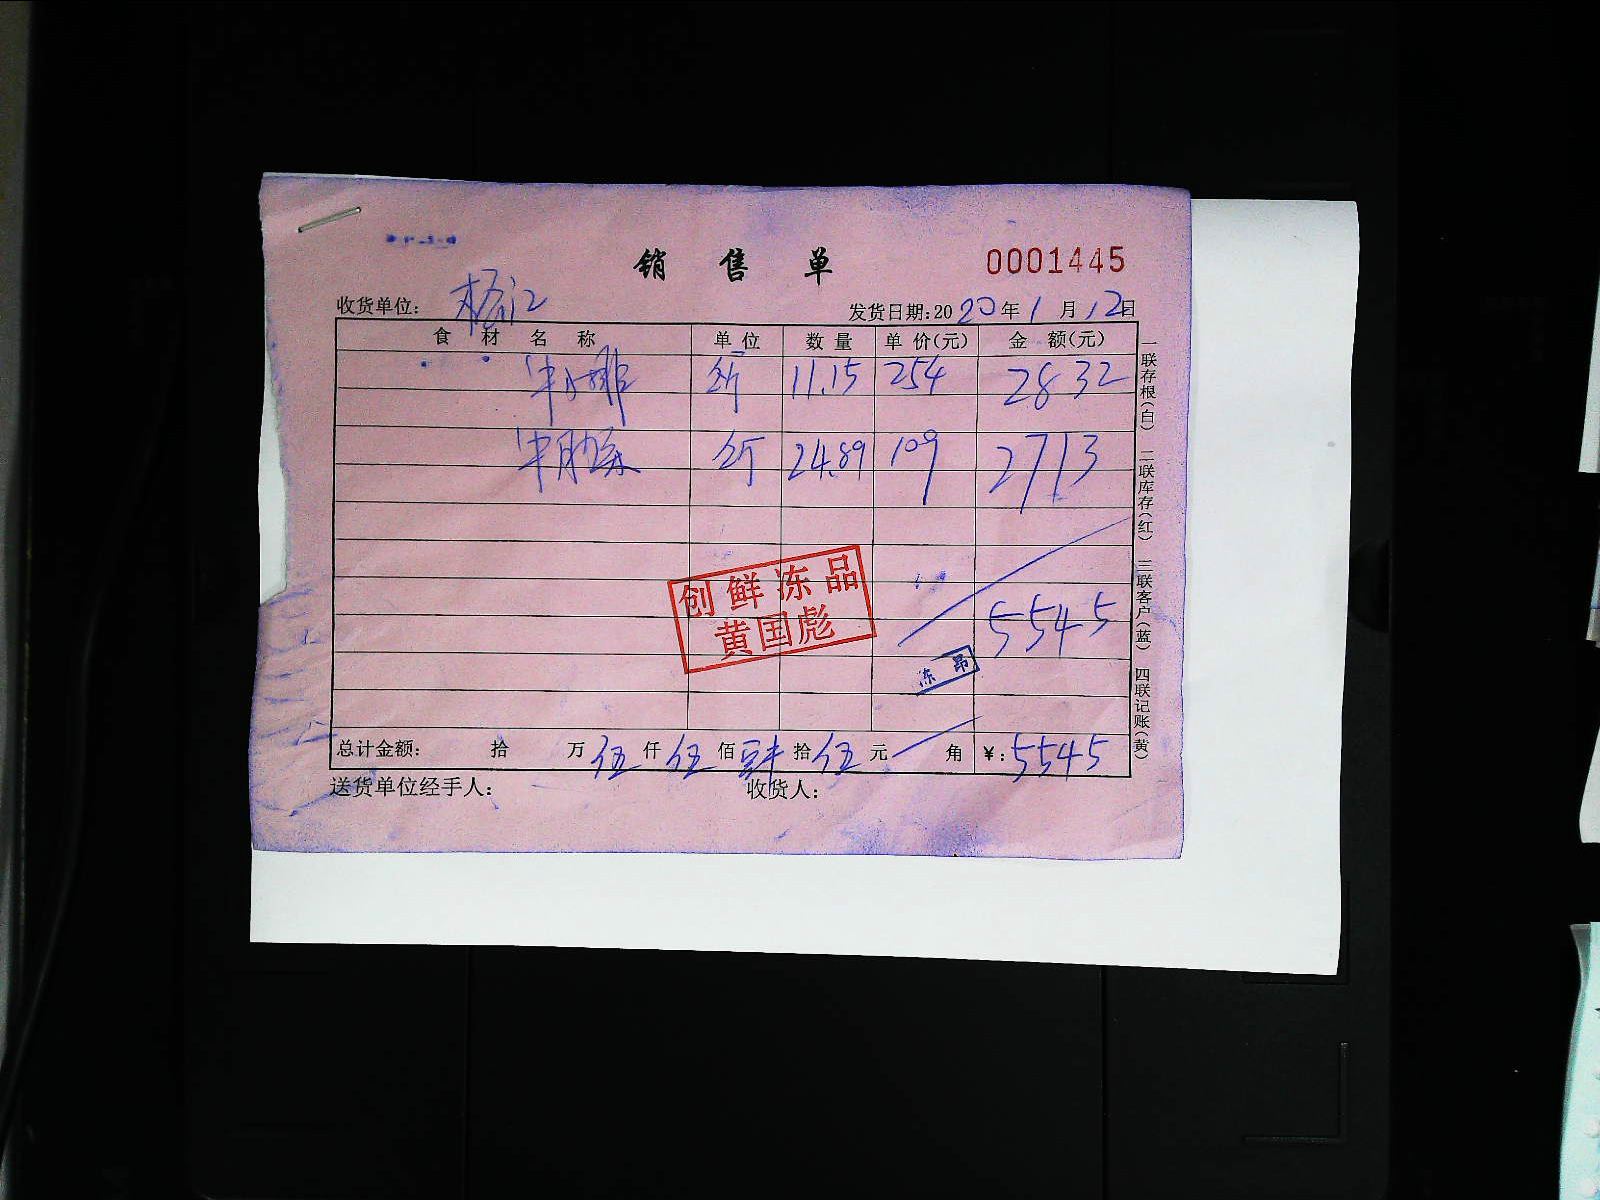 销售单
0001445
收货单位: 杨江
发货日期:2020年1月12日
食材名称 单位 数量 单价(元) 金额(元)
牛小排 斤 11.15 254 2832
斤 24.89 109 2713
5545
创鲜冻品
黄国彪
总计金额: 拾 万 伍 仟 伍 佰 肆 拾 伍 元 角 ¥:5545
送货单位经手人: 收货人:
一联存根(白) 二联库存(红) 三联客户(蓝) 四联记账(黄)